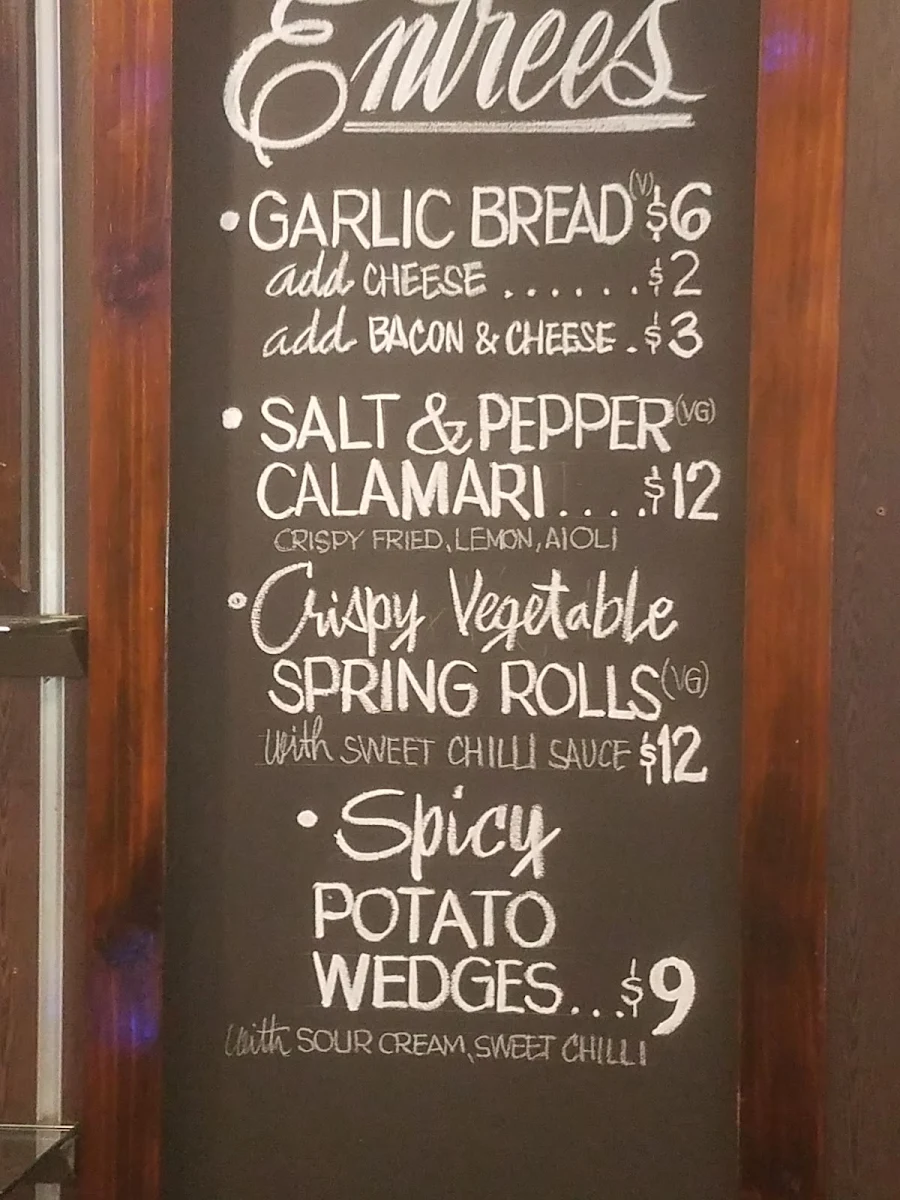 Entrees
• GARLIC BREAD (V) $6
add CHEESE ...... $2
add BACON & CHEESE . $3
• SALT & PEPPER (VG)
CALAMARI .... $12
CRISPY FRIED, LEMON, AIOLI
• Crispy Vegetable
SPRING ROLLS (VG)
with SWEET CHILLI SAUCE $12
• Spicy
POTATO
WEDGES ... $9
with SOUR CREAM, SWEET CHILLI